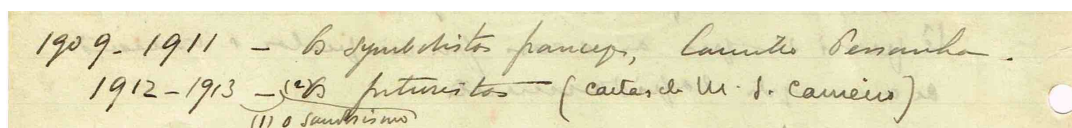 1909-1911 — Os symbolistas francezes, Camillo Pessanha.
1912-1913 — (2) Os futuristas (cartas de M. S. Carneiro)
(1) o saudosismo